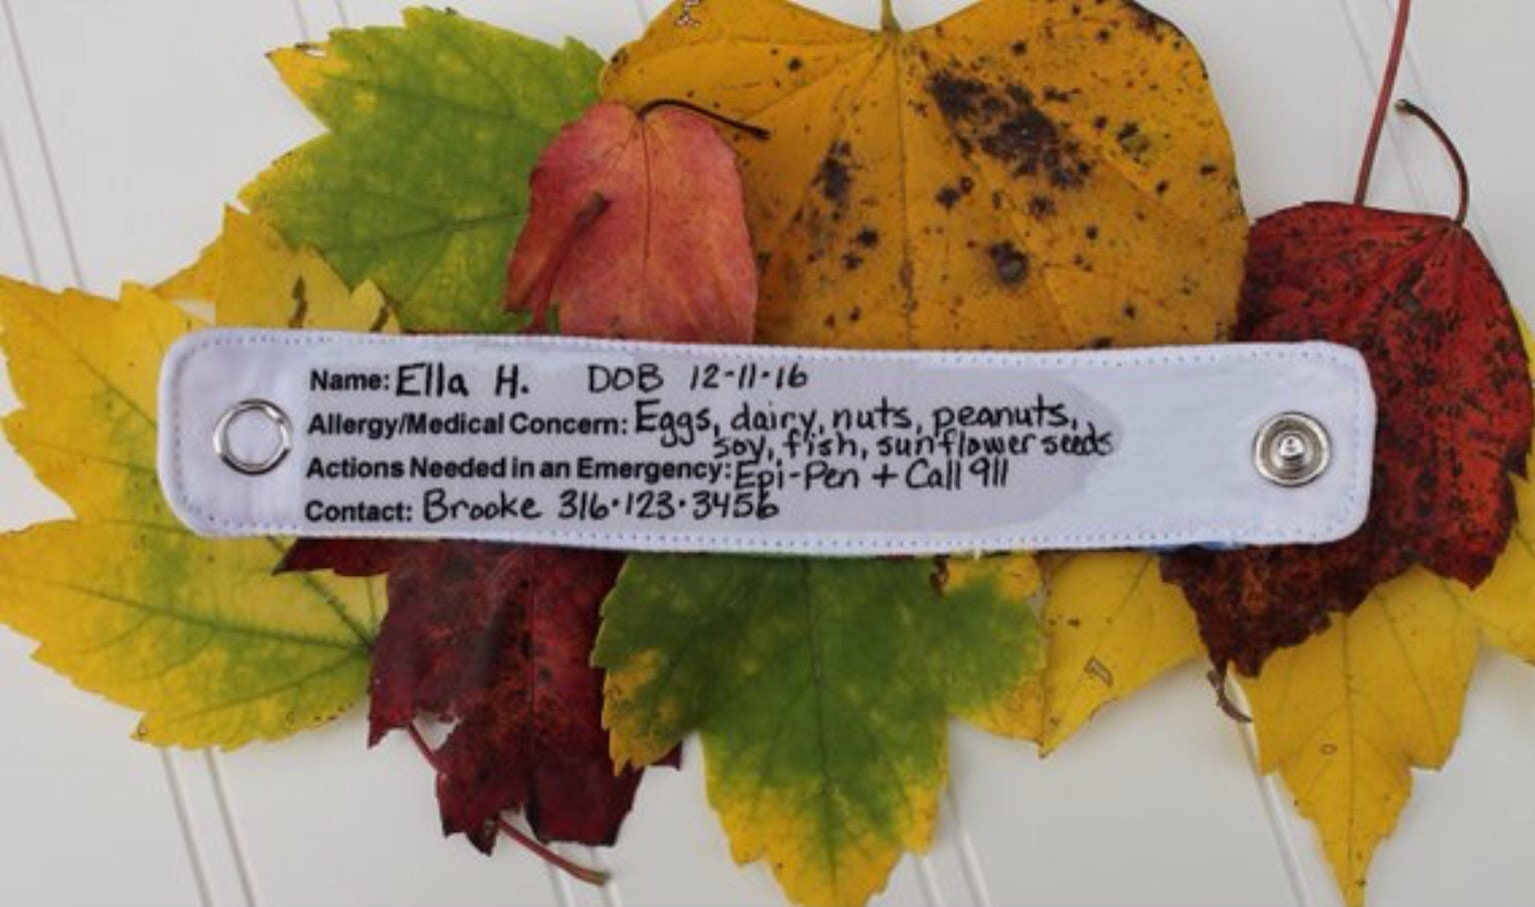 Name: Ella H. DOB 12-11-16
Allergy/Medical Concern: Eggs, dairy, nuts, peanuts,
soy, fish, sunflower seeds
Actions Needed in an Emergency: Epi-Pen + Call 911
Contact: Brooke 316-123-3456